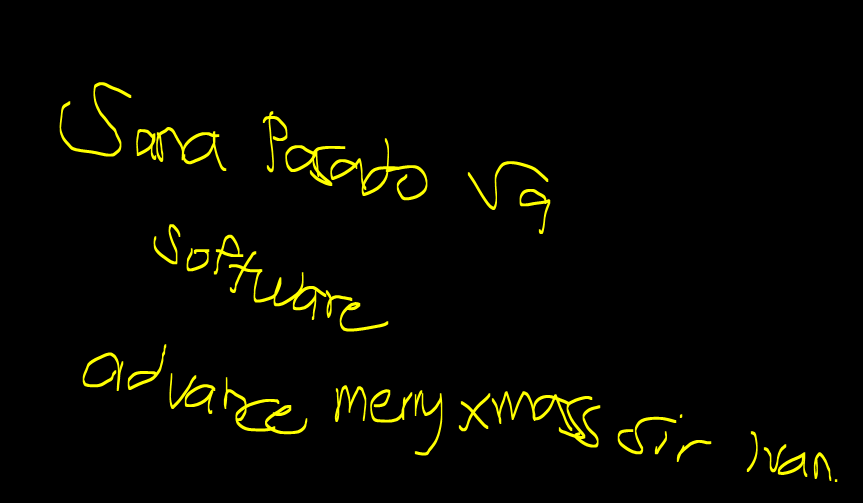 Sana Pasado sa
software
advance merry xmass sir ivan.